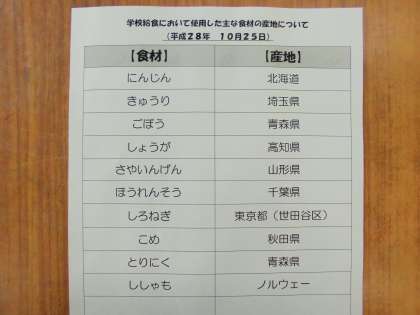 学校給食において使用した主な食材の産地について
（平成28年　10月25日）
【食材】　【産地】
にんじん　北海道
きゅうり　埼玉県
ごぼう　青森県
しょうが　高知県
さやいんげん　山形県
ほうれんそう　千葉県
しろねぎ　東京都（世田谷区）
こめ　秋田県
とりにく　青森県
ししゃも　ノルウェー